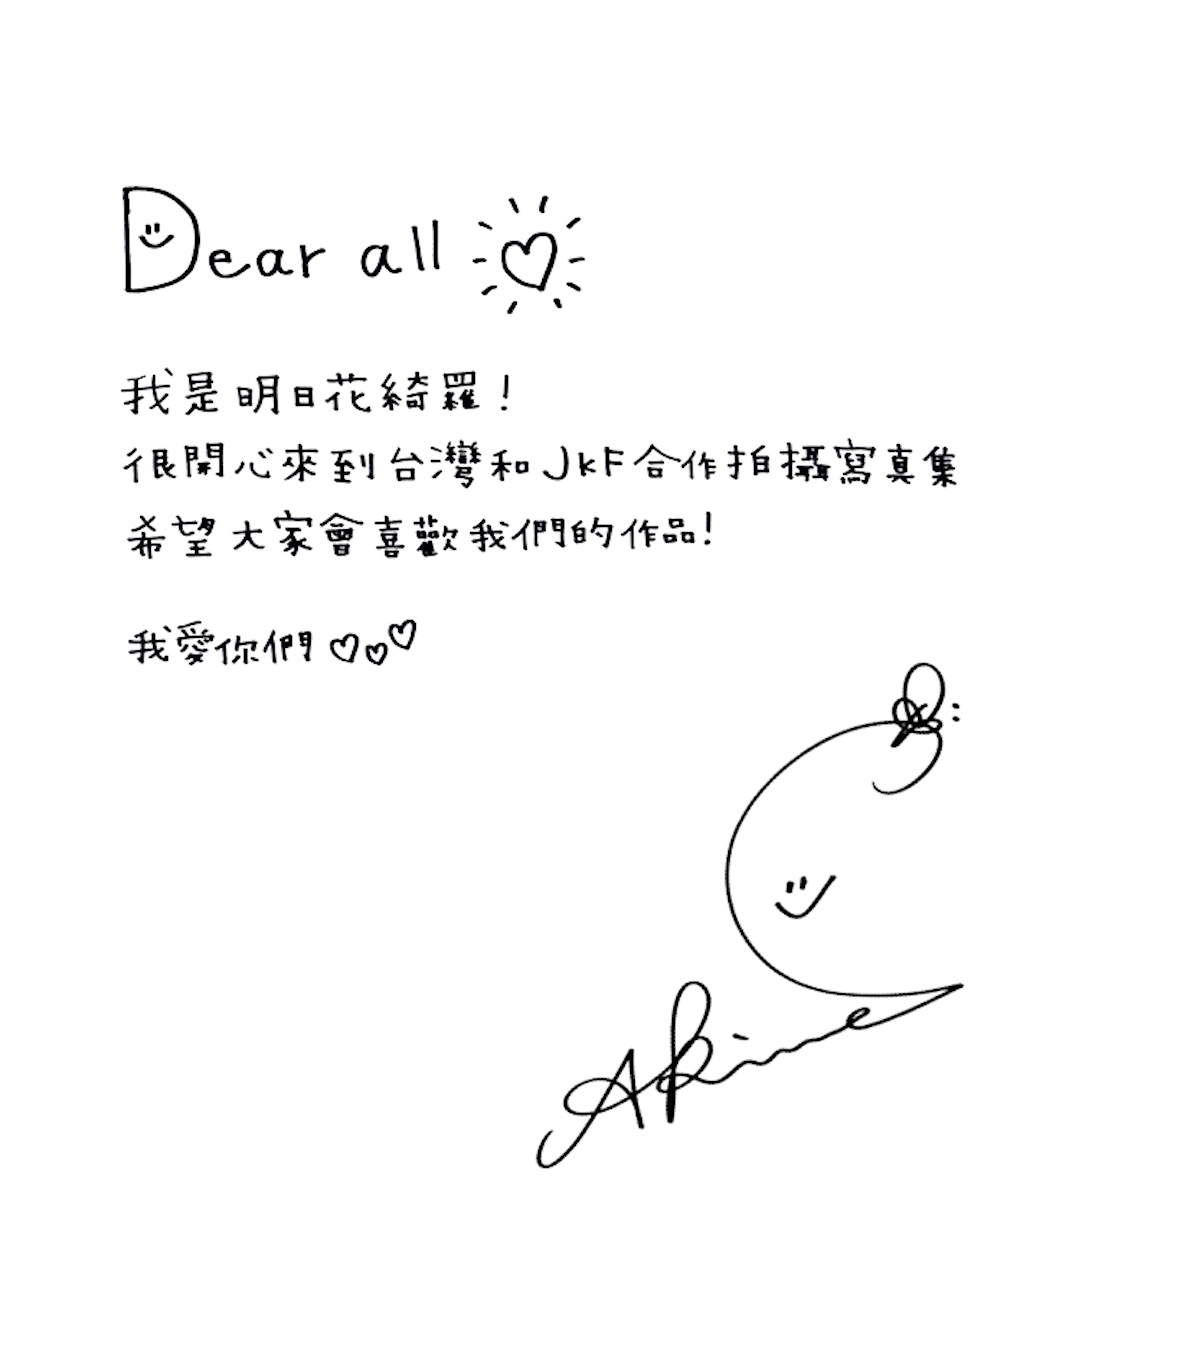 Dear all
我是明日花綺羅！
很開心來到台灣和JKF合作拍攝寫真集
希望大家會喜歡我們的作品！
我愛你們